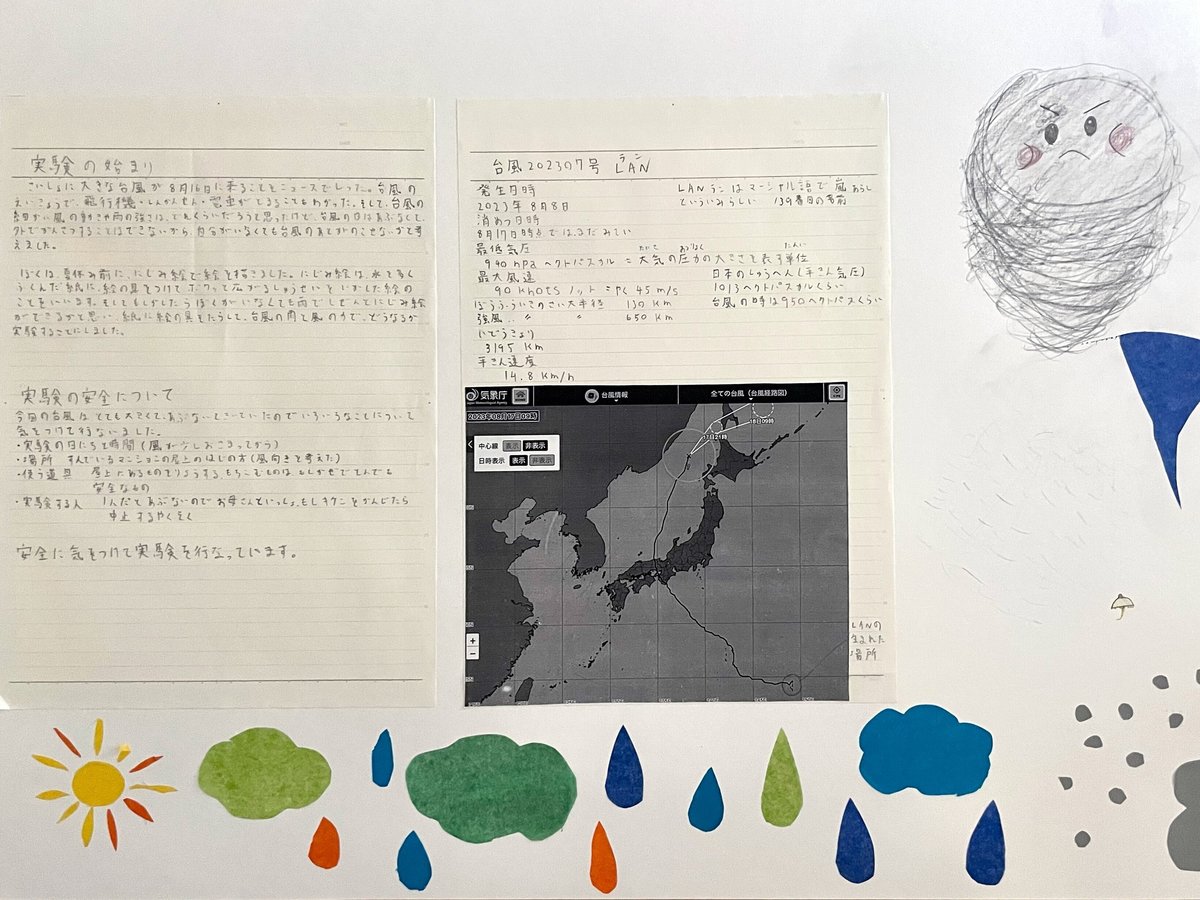 実験の始まり
さいしょに大きな台風が8月16日に来ることをニュースでしった。台風の
えいきょうで、飛行機・しんかんせん・電車がとまることもわかった。そして、台風の
細かい風の動きや雨の強さは、どれくらいだろうと思ったので、台風の日はあぶなくて、
外でかんさつすることはできないから、自分がいなくても台風のあとがのこせないかと考
えました。
ぼくは、夏休み前に、にじみ絵で絵を描きました。にじみ絵は、水を多く
ふくんだ紙に、絵の具をつけて、広がるしゅせいをいかした絵の
ことをいいます。そして、もしかしたらぼくがいなくても雨でしぜんとにじみ絵
ができるかと思い、紙に絵の具をたらして、台風の雨と風の力で、どうなるか
実験することにしました。
実験の安全について
今回の台風は、とても大きくて、あぶないときいていたのでいろいろなことについて
気をつけて行ないました。
・実験の日にちと時間(風が少しおさまってから)
・場所 すんでいるマンションの屋上のはしの方(風向きを考えた)
・使う道具 屋上にあるものをりようする。もちこむものは、もしかぜでとんでも
安全なもの
・実験する人 1人だとあぶないのでお母さんといっしょ。もしキケンをかんじたら
中止するやくそく
安全に気をつけて実験を行なっています。
台風2023の7号 LAN
ラン
発生日時
2023年8月8日
消めつ日時
8月17日時点では、まだみてい
LANランはマーシャル語で嵐あらし
といういみらしい 139番目の名前
最低気圧
940 hPa ヘクトパスカル = 大気の圧力の大きさを表す単位
たんい
最大風速
90 knots ノット =やく 45 m/s
日本のしゅうへん(平きん気圧)
1013ヘクトパスカルくらい
台風の時は950ヘクトパスくらい
ぼうふういきのさい大半径 130 Km
強風 〃 〃 650 Km
いどうきょり
3195 Km
平きん速度
14.8 Km/h
気象庁
Japan Meteorological Agency
台風情報
全ての台風(台風経路図)
2023年08月17日09時
中心線 表示 非表示
日時表示 表示 非表示
18日09時
17日21時
+
−
LANの
生まれた
場所